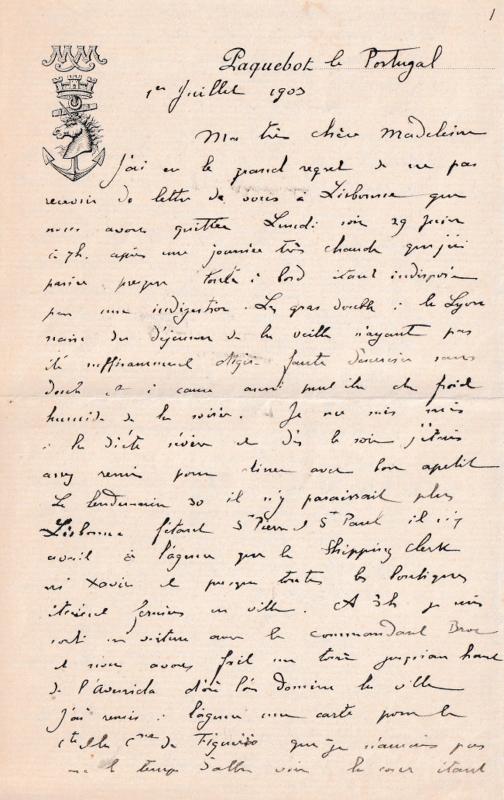 1
MM
Paquebot le Portugal
1er Juillet 1903
Ma très chère Madeleine
J'ai eu le grand regret de ne pas
recevoir de lettre de vous à Lisbonne que
nous avons quittée Lundi soir 29 Juin
à 7h. après une journée très chaude que j'ai
passée presque toute à bord étant indisposé
par une indigestion. Le gras double à la Lyon
naise du déjeuner de la veille n'ayant pas
été suffisamment digéré faute d'exercice sans
doute et à cause aussi peut être du froid
humide de la soirée. Je me suis mis
à la diète sévère et dès le soir j'étais
assez remis pour diner avec bon apétit
Le lendemain 30 il n'y paraissait plus
Lisbonne fêtant St Pierre et St Paul il n'y
avait à l'agence que le Shipping Clerk
Mr Xavier et presque toutes les boutiques
étaient fermées en ville. A 3h je suis
sorti en voiture avec le commandant Broc
et nous avons fait un tour jusqu'au haut
de l'Avenida d'où l'on domine la ville
J'ai remis à l'agence une carte pour le
Cte et la Csse de que je n'aurais pas
eu le temps d'aller voir le coeur étant